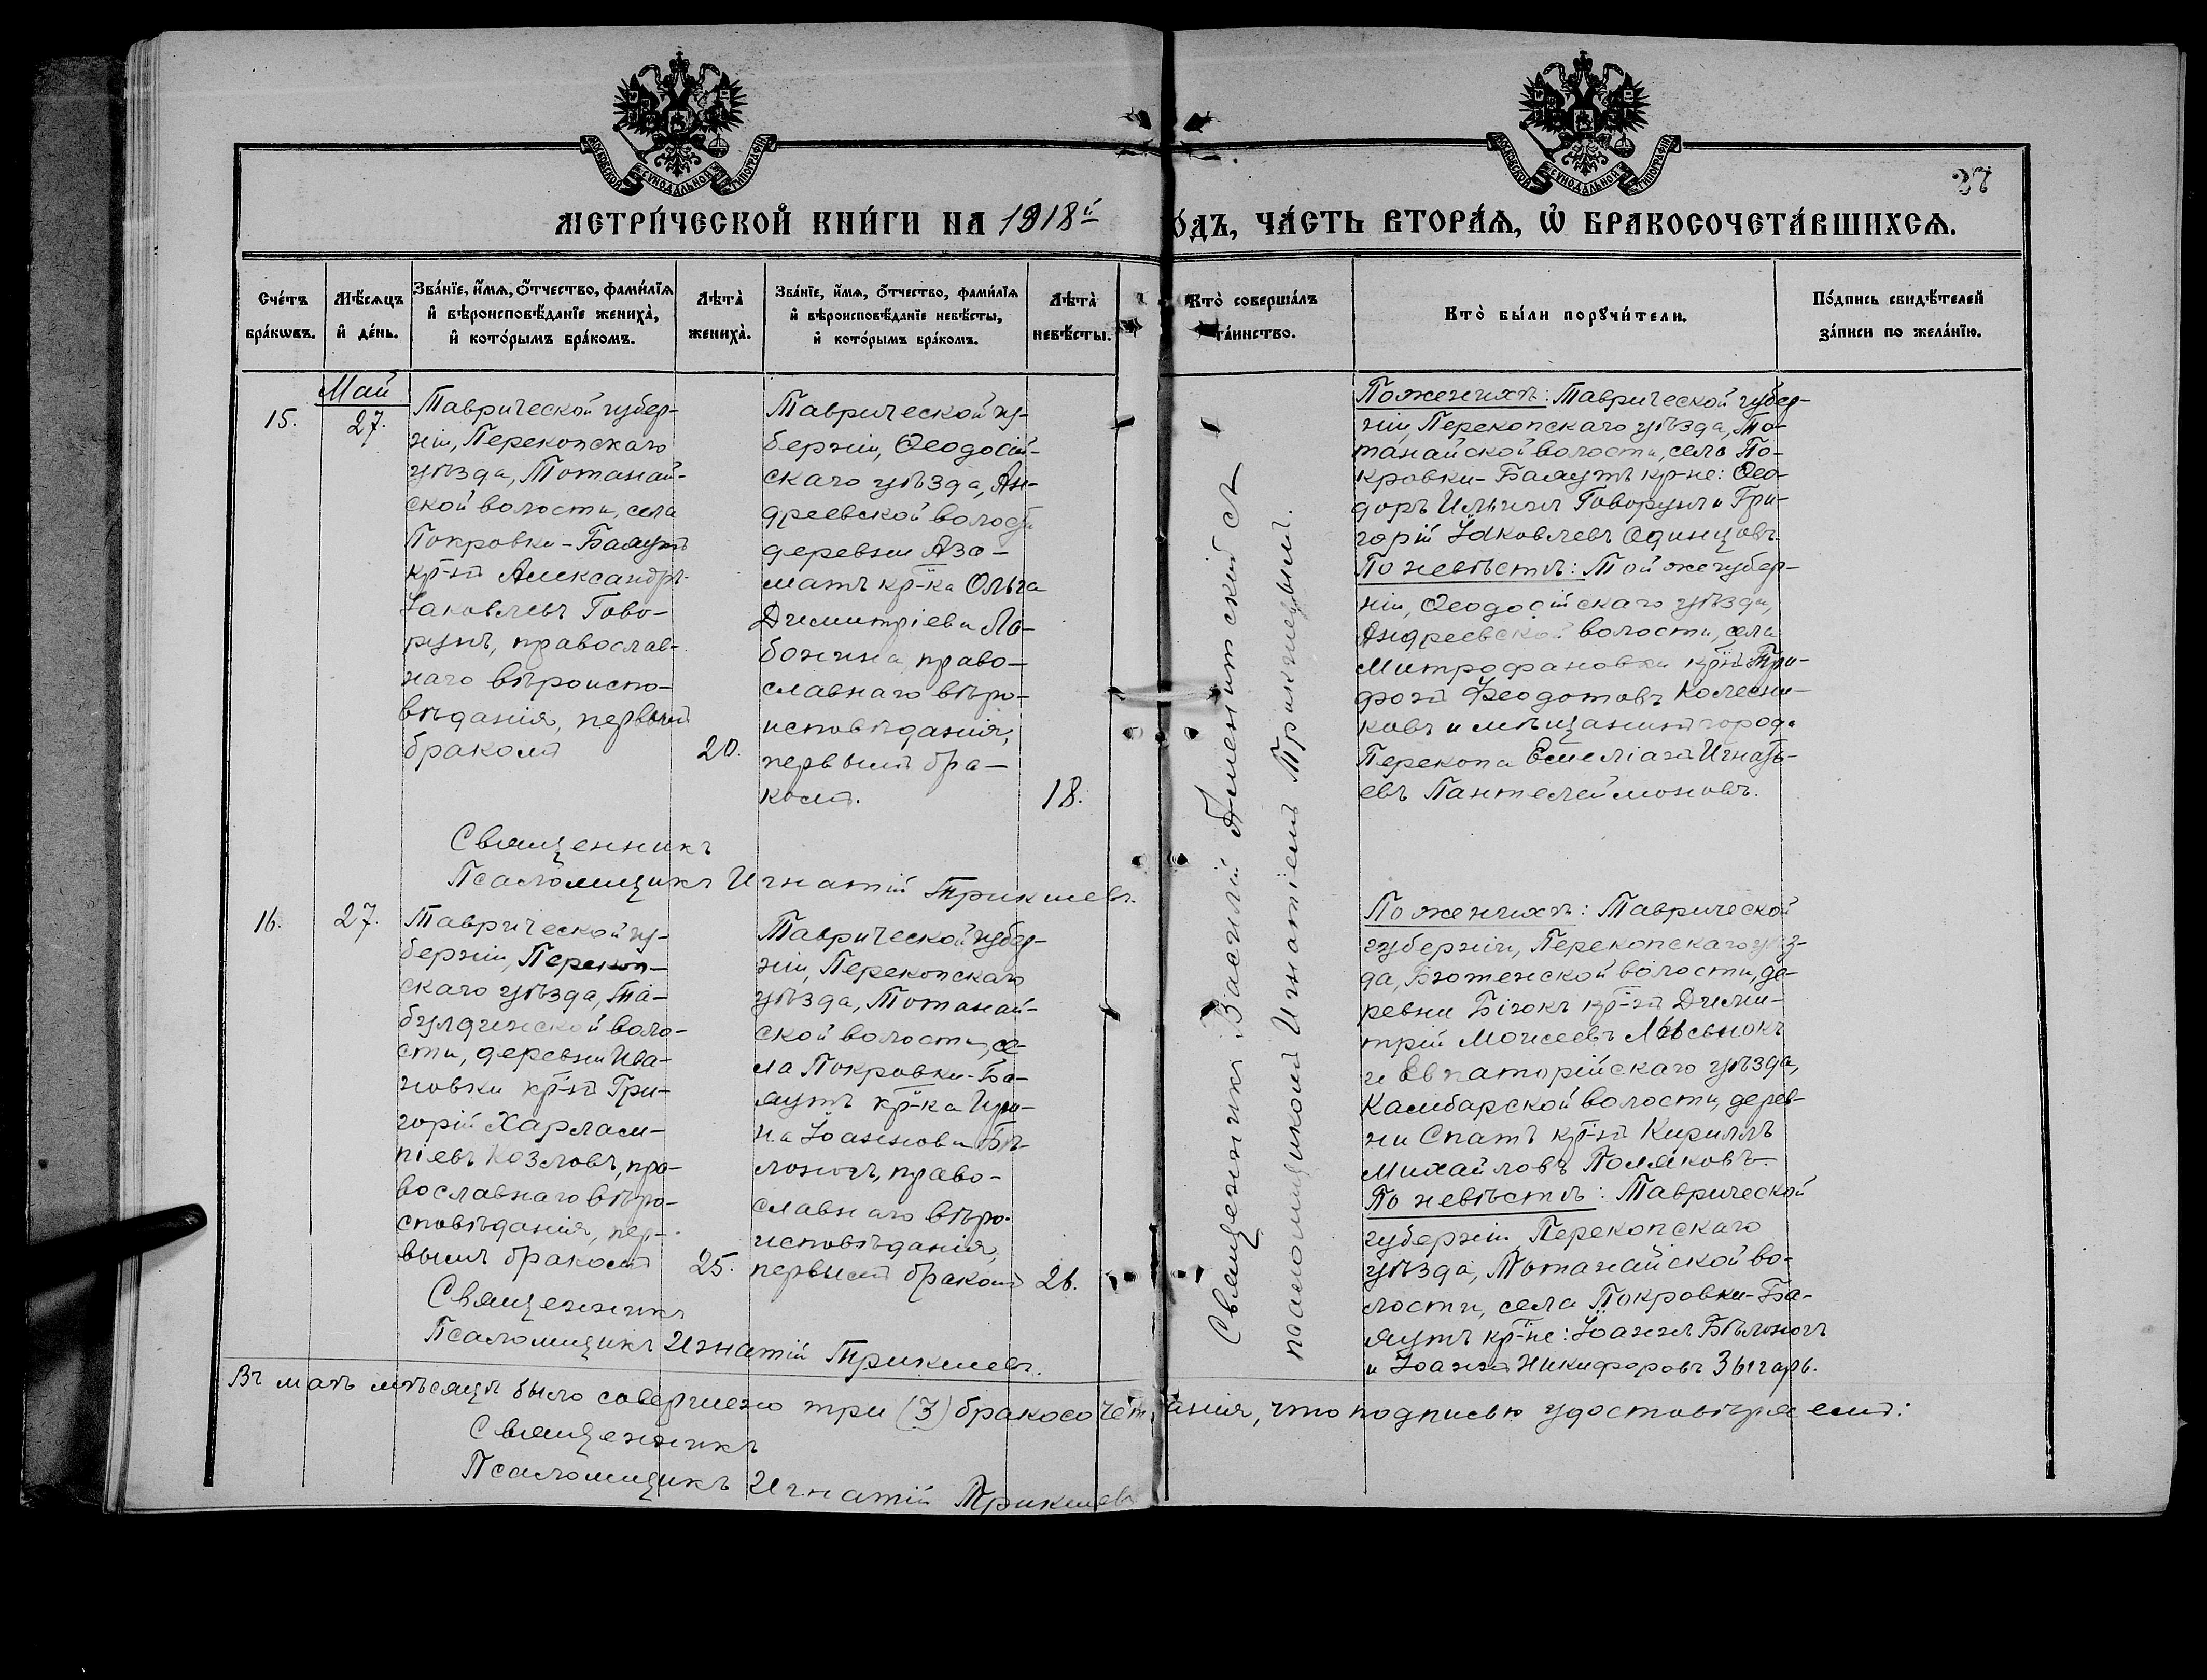 МОСКОВСКОЙ СѴНОДАЛЬНОЙ ТИПОГРАФІИ
МОСКОВСКОЙ СѴНОДАЛЬНОЙ ТИПОГРАФІИ
37
МЕТРИ́ЧЕСКОЙ КНИ́ГИ НА 1918й
ГО́ДЪ, ЧА́СТЬ ВТОРА́Ѧ, Ѡ҆ БРАКОСОЧЕТА́ВШИХСѦ.
Сче́тъ бра́кѡвъ.
Мѣ́сѧцъ и҆ де́нь.
Зва́нїе, и҆́мѧ, ѻ҆́тчество, фами́лїѧ
и҆ вѣроисповѣ́данїе жениха̀,
и҆ кото́рымъ бра́комъ.
Лѣта̀ жениха̀.
Зва́нїе, и҆́мѧ, ѻ҆́тчество, фами́лїѧ
и҆ вѣроисповѣ́данїе невѣ́сты,
и҆ кото́рымъ бра́комъ.
Лѣта̀ невѣ́сты.
Кто̀ соверша́лъ
та́инство.
Кто̀ бы́ли порꙋчи́тели.
По́дпись свидѣ́телей
за́писи по жела́нїю.
Май
15.
27.
Таврической губер-
ніи, Перекопскаго
уѣзда, Тотанай-
ской волости, села
Покровки-Баяутъ
кр-нъ Александръ
Іаковлевъ Гово-
рунъ, православ-
наго вѣроиспо-
вѣданія, первымъ
бракомъ
20.
Таврической гу-
берніи, Ѳеодосій-
скаго уѣзда, Ан-
дреевской волости
деревни Азa-
матъ кр-ка Ольга
Димитріева Ло-
бонина, право-
славнаго вѣро-
исповѣданія,
первымъ бра-
комъ.
18.
Священникъ Василій
псаломщикомъ Игнатіемъ Трикшевымъ.
По женихѣ: Таврической губер-
ніи, Перекопскаго уѣзда, То-
танайской волости, села По-
кровки-Баяутъ кр-не: Ѳео-
доръ Ильинъ Говорунъ и Гри-
горій Іаковлевъ Одинцовъ.
По невѣстѣ: Той же губер-
ніи, Ѳеодосійскаго уѣзда,
Андреевской волости, села
Митрофановки кр-нъ Три-
фонъ Феодотовъ Колесни-
ковъ и мѣщанинъ города
Перекопа Емеліанъ Игнать-
евъ Пантелеймоновъ.
Священникъ
Псаломщикъ Игнатій Трикшевъ.
16.
27.
Таврической гу-
берніи, Перекоп-
скаго уѣзда, Та-
булдинской воло-
сти, деревни Ива-
новки кр-нъ Гри-
горій Харлам-
піевъ Козловъ, пра-
вославнаго вѣро-
сповѣданія, пер-
вымъ бракомъ
25.
Таврической губер-
ніи, Перекопскаго
уѣзда, Тотанай-
ской волости, се-
ла Покровки-Ба-
яутъ кр-ка Ири-
на Іоаннова Бѣ-
лоногъ, право-
славнаго вѣро-
исповѣданія,
первымъ бракомъ
26.
По женихѣ: Таврической
губерніи, Перекопскаго уѣз-
да, волости, де-
ревни кр-нъ Дими-
трій Моисеевъ
и Евпаторійскаго уѣзда,
Камбарской волости, дерев-
ни Спатъ кр-нъ Кириллъ
Михайловъ Поляковъ.
По невѣстѣ: Таврической
губерніи Перекопскаго
уѣзда, Тотанайской во-
лости, села Покровки-Ба-
яутъ кр-не: Іоаннъ Бѣлоногъ
и Іоаннъ Никифоровъ Зыгарь.
Священникъ
Псаломщикъ Игнатій Трикшевъ.
Въ маѣ мѣсяцѣ было совершено три (3) бракосочетанія, что подписью удостовѣряемъ:
Священникъ
Псаломщикъ Игнатій Трикшевъ